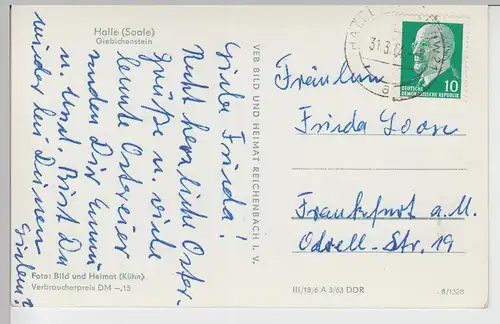 Halle (Saale)
Giebichenstein
Liebe Frieda!
Recht herzliche Oster-
grüße u. viele
bunte Ostereier
senden Dir Emmi
u. Bist Du
wieder bei Deinen
Foto: Bild und Heimat (Kühn)
Verbraucherpreis DM –,15
VEB BILD UND HEIMAT REICHENBACH I. V.
31.3.
a
10
DEUTSCHE
DEMOKRATISCHE REPUBLIK
Fräulein
Frieda Loose
Frankfurt a. M.
Str. 19
III/18/6 A 3/63 DDR
8/1328